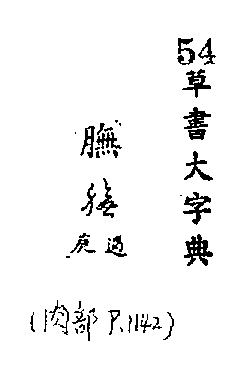 54
草書大字典
膴
過庭
(肉部 P.1142)